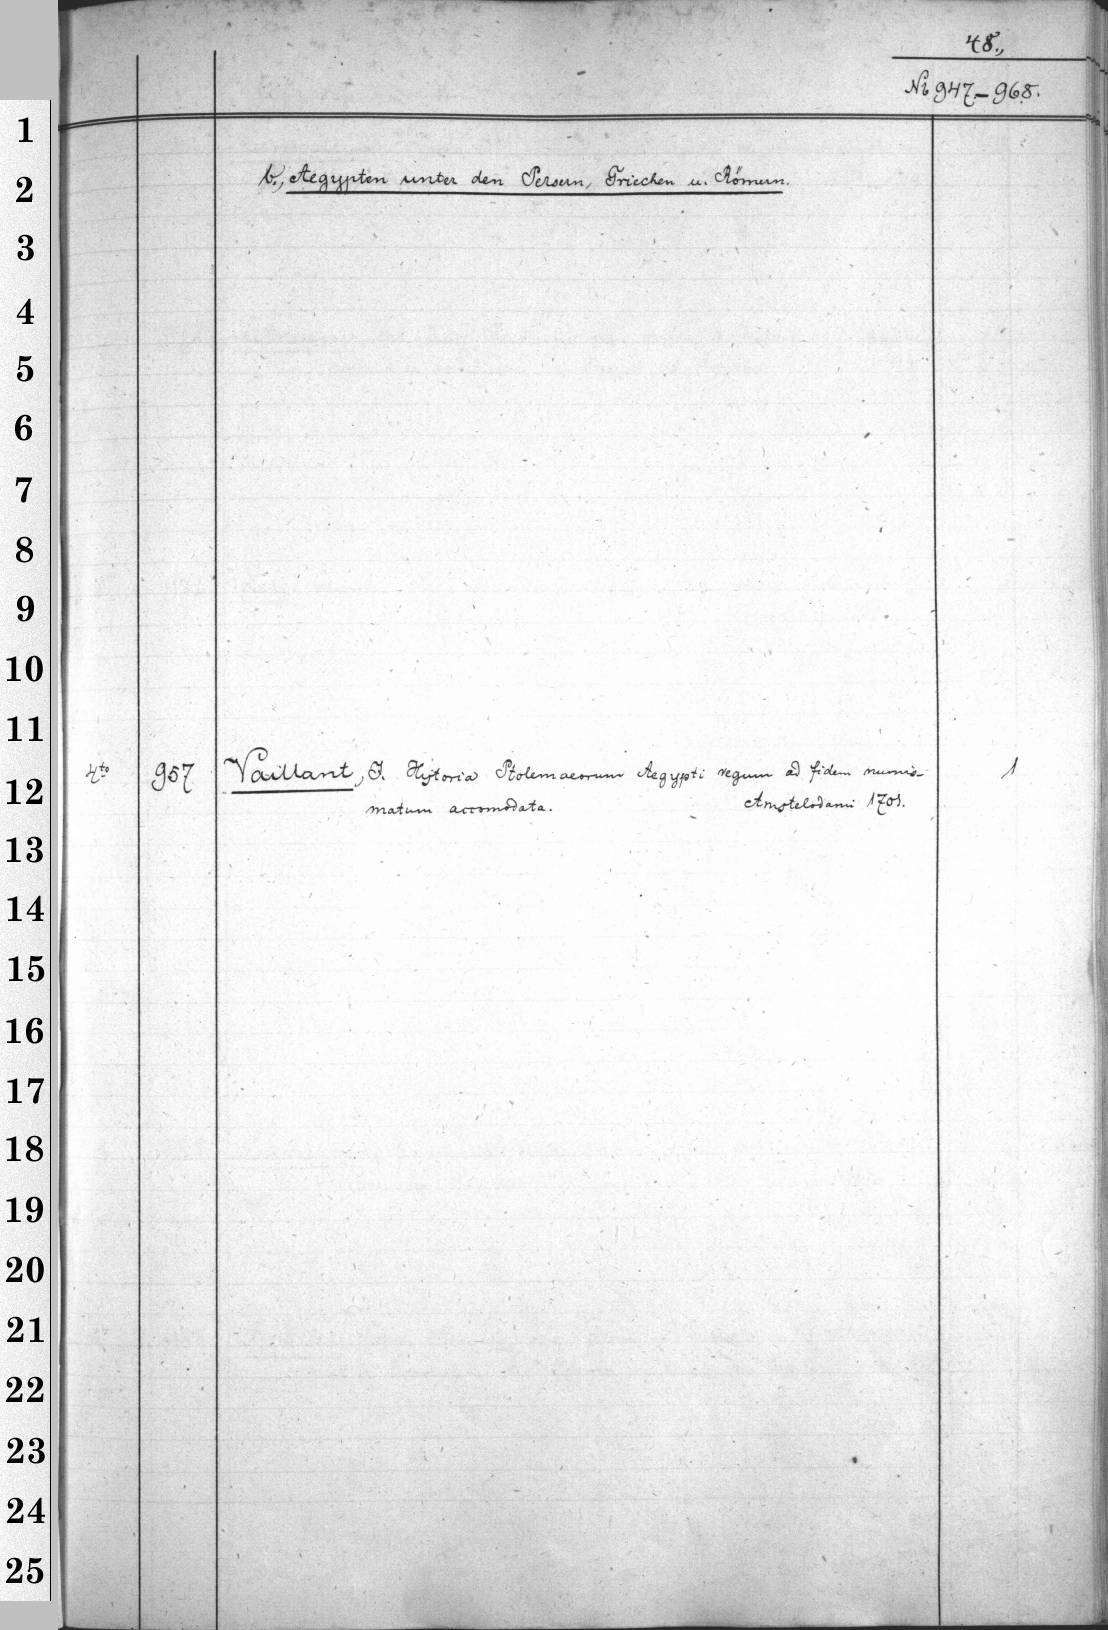 48.,
No 947.-968.
1
2
b., Aegypten unter den Persern, Griechen u. Römern.
3
4
5
6
7
8
9
10
11
12
4to 957 Vaillant, J. Historia Ptolemaeorum Aegypti regum ad fidem numis-
matum accomodata. Amstelodami 1701. 1
13
14
15
16
17
18
19
20
21
22
23
24
25